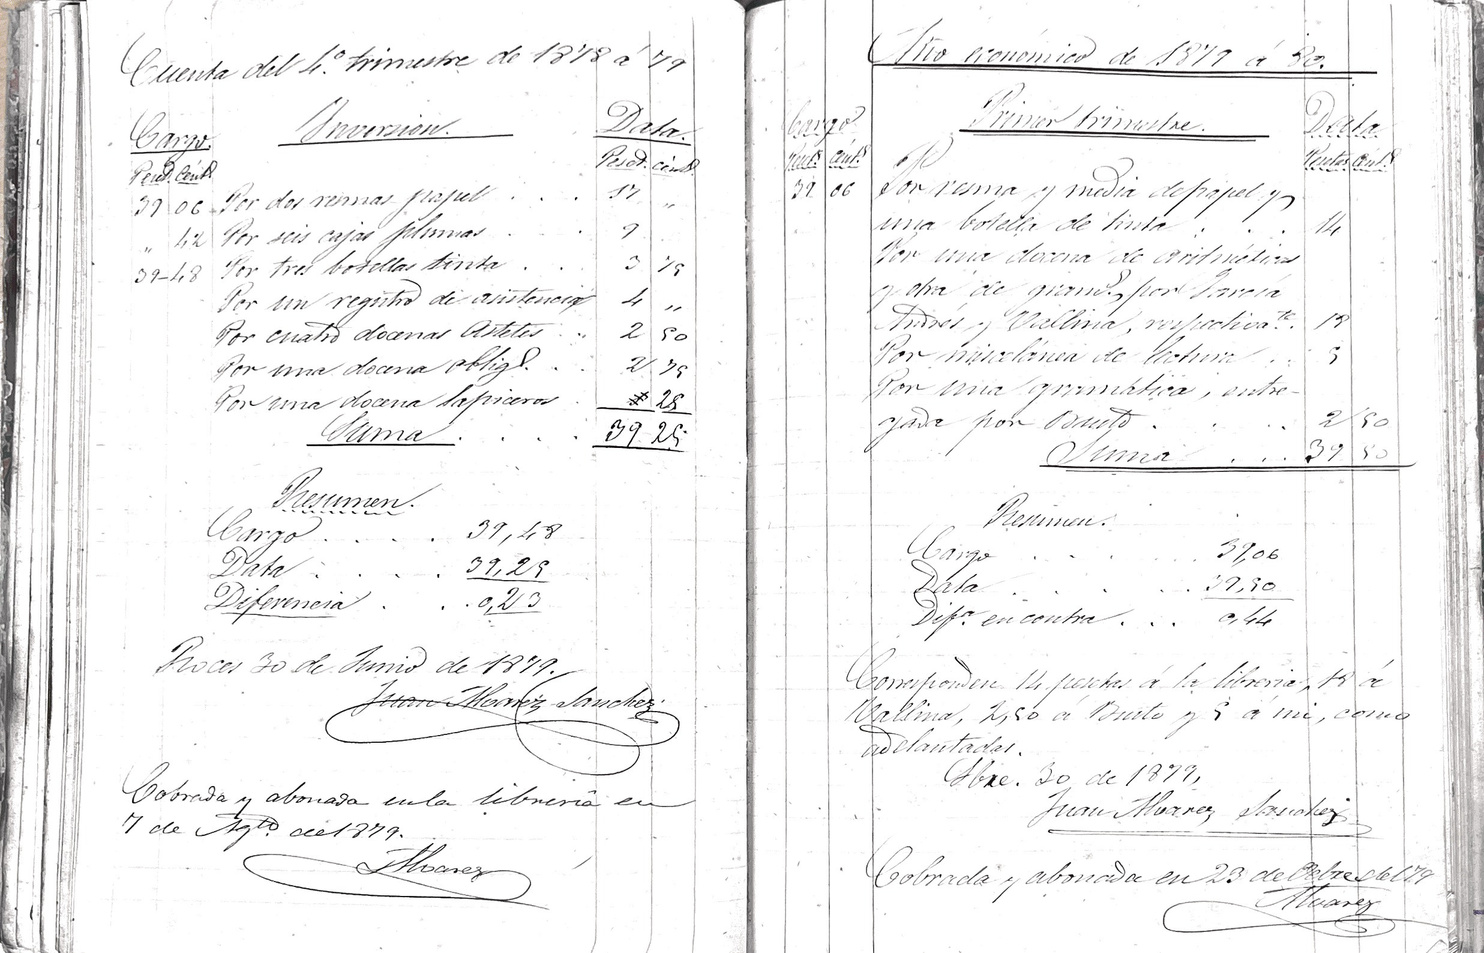 Cuenta del 4.º trimestre de 1878 á 79
Cargo. Inversion. Data.
Peset. cént.s Peset. cént.s
39 06 Por dos resmas papel . . . 17 „
„ 42 Por seis cajas plumas . . . 9
39-48 Por tres botellas tinta . . . 3 75
Por un registro de asistencia 4 „
Por cuatro docenas Astetes . . 2 50
Por una docena oblig.s . . 2 75
Por una docena lapiceros . 25
Suma . . . . 39 25
Resumen.
Cargo . . . . 39,48
Data . . . . 39,25
Diferencia . . . 0,23
Roces 30 de Junio de 1879.
Juan Alvarez Sanchez
Cobrada y abonada en la librería en
7 de Agto de 1879.
Alvarez
Año económico de 1879 á 80.
Cargo Primer trimestre. Data
Peset.s cént.s Pesetas cént.s
39 06 Por resma y media de papel y
una botella de tinta . . . 14
Por una docena de aritméticas
y otra de gram.s, por García
Andrés y Vallina, respectiva.te. 18
Por miscelánea de lectura . . 5
Por una gramática, entre-
gada por Busto . . . 2 50
Suma . . . 39 50
Resumen.
Cargo . . . . 39,06
Data . . . . 39,50
Dif.a en contra . . . 0,44
Corresponden 14 pesetas á la librería, 18 á
Vallina, 2,50 á Busto y 5 á mi, como
adelantadas.
30 de 1879.
Juan Alvarez Sanchez
Cobrada y abonada en 23 de Octbre de 1879
Alvarez